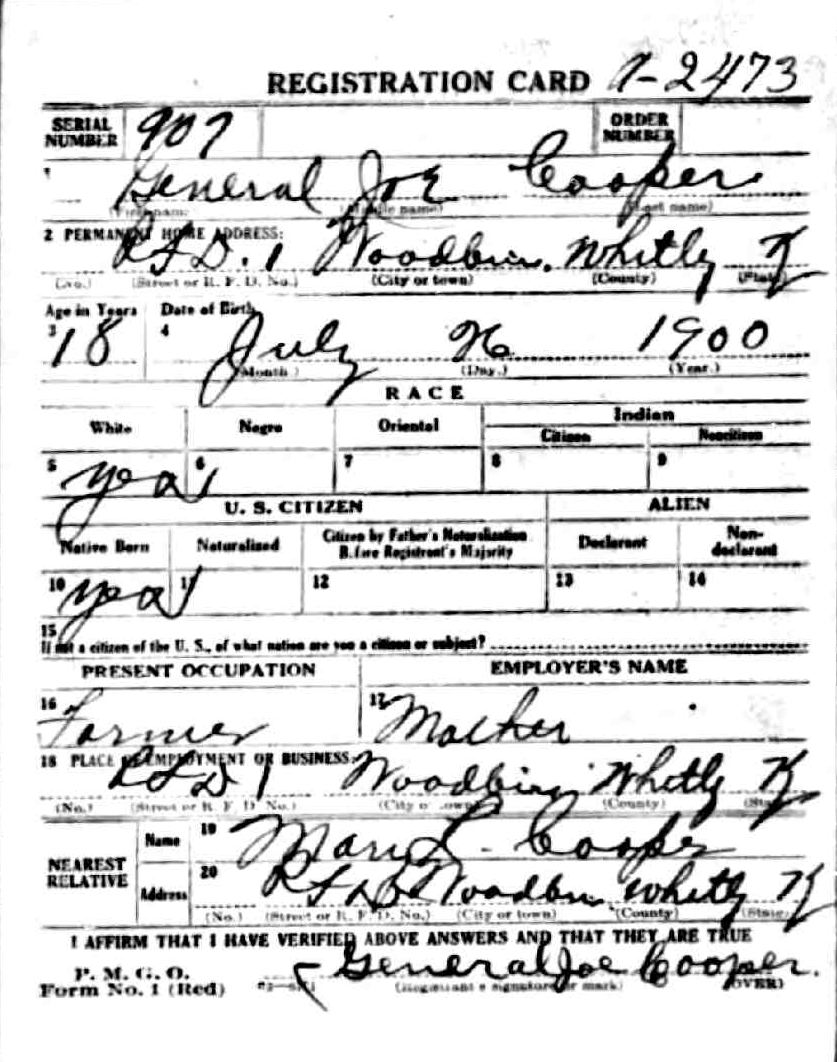 REGISTRATION CARD 1-2473
SERIAL NUMBER 907 ORDER NUMBER
1 General Joe Cooper
(First name) (Middle name) (Last name)
2 PERMANENT HOME ADDRESS:
RFD. 1 Woodbin. Whitly Ky
(No.) (Street or R. F. D. No.) (City or town) (County) (State)
Age in Years Date of Birth
3 18 4 July 26 1900
(Month) (Day.) (Year.)
RACE
White Negro Oriental Indian
Citizen Noncitizen
5 yes 6 7 8 9
U. S. CITIZEN ALIEN
Native Born Naturalized Citizen by Father's Naturalization Before Registrant's Majority Declarant Non-declarant
10 yes 11 12 13 14
15
If not a citizen of the U. S., of what nation are you a citizen or subject?
PRESENT OCCUPATION EMPLOYER'S NAME
16 Farmer 17 Mother
18 PLACE OF EMPLOYMENT OR BUSINESS:
RFD 1 Woodbin Whitly Ky
(No.) (Street or R. F. D. No.) (City or town) (County) (State)
NEAREST RELATIVE
Name 19 Mary L. Cooper
Address 20 RFD Woodbin Whitly Ky
(No.) (Street or R. F. D. No.) (City or town) (County) (State)
I AFFIRM THAT I HAVE VERIFIED ABOVE ANSWERS AND THAT THEY ARE TRUE
P. M. G. O.
Form No. 1 (Red) General Joe Cooper.
(Registrant's signature or mark) (OVER)